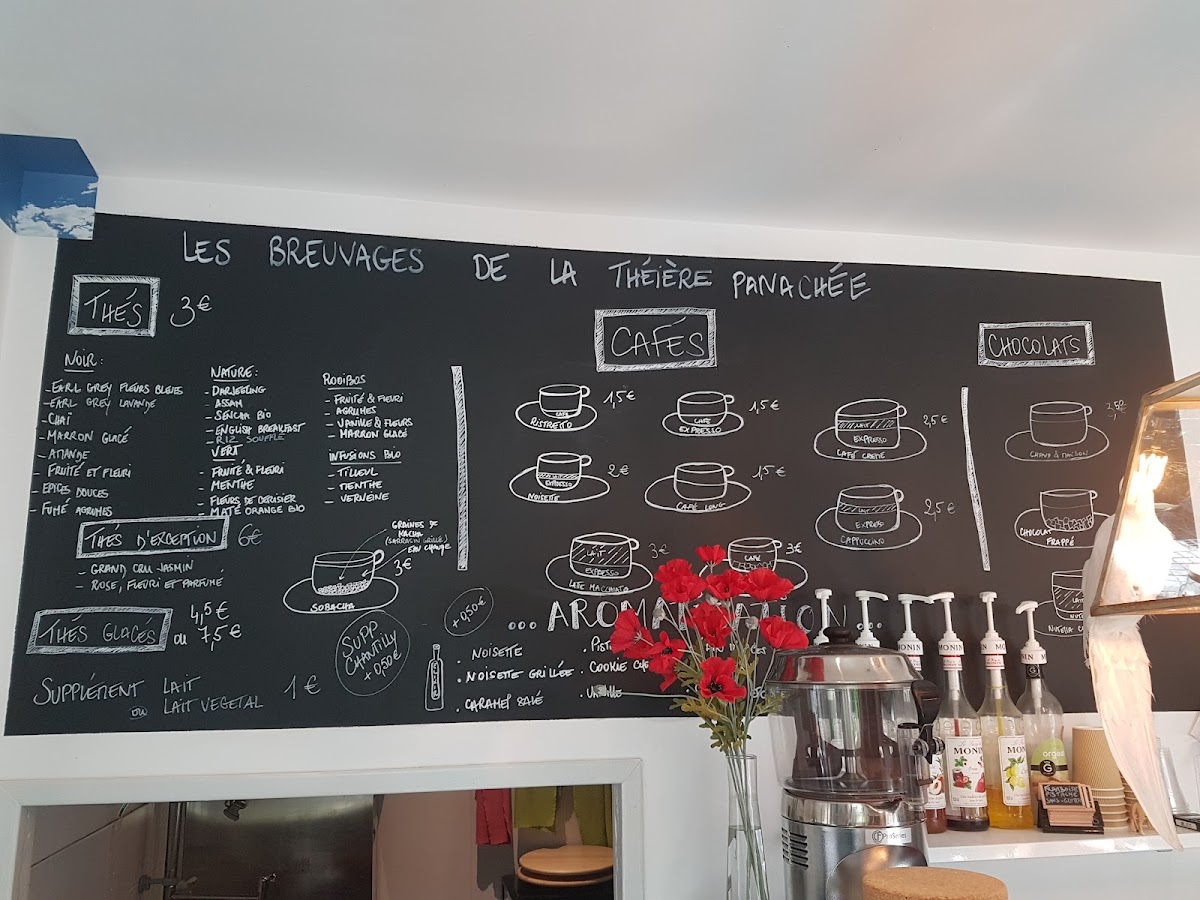 LES BREUVAGES DE LA THÉIÈRE PANACHÉE
THÉS 3€
NOIR:
-EARL GREY FLEURS BLEUES
-EARL GREY LAVANDE
-CHAI
-MARRON GLACÉ
-AMANDE
-FRUITÉ ET FLEURI
-EPICES DOUCES
-FUMÉ AGRUMES
NATURE:
-DARJEELING
-ASSAM
-SENCHA BIO
-ENGLISH BREAKFAST
-RIZ SOUFFLÉ
VERT
-FRUITÉ & FLEURI
-MENTHE
-FLEURS DE CERISIER
-MATÉ ORANGE BIO
ROOIBOS
-FRUITÉ & FLEURI
-AGRUMES
-VANILLE & FLEURS
-MARRON GLACÉ
INFUSIONS BIO
-TILLEUL
-MENTHE
-VERVEINE
THÉS D'EXCEPTION 6€
- GRAND CRU JASMIN
- ROSE, FLEURI ET PARFUMÉ
GRAINES DE
(SARRACIN GRILLÉ)
EAU CHAUDE
3€
SOBACHA
THÉS GLACÉS 4,5€
ou 7,5€
SUPPLÉMENT LAIT
ou LAIT VEGETAL
1€
SUPP
CHANTILLY
+0,50€
CAFÉS
CAFÉ
RISTRETTO
1,5€
CAFÉ
EXPRESSO
1,5€
LAIT
EXPRESSO
CAFÉ CREME
2,5€
EXPRESSO
NOISETTE
2€
CAFÉ LONG
1,5€
LAIT
EXPRESSO
CAPPUCCINO
2,5€
LAIT
EXPRESSO
LATE MACCHIATO
3€
CAFÉ
3€
+0,50€
...AROMATISATION...
. NOISETTE
. NOISETTE GRILLÉE
. CARAMEL SALÉ
. COOKIE
CHOCOLATS
2,50
CHAUD À MAISON
CHOCOLAT
FRAPPÉ
LAIT
NUTELLA
MONIN
MONIN
MONIN
MONIN
organic
G
FRAMBOISE
PISTACHE
SANS-GLUTEN